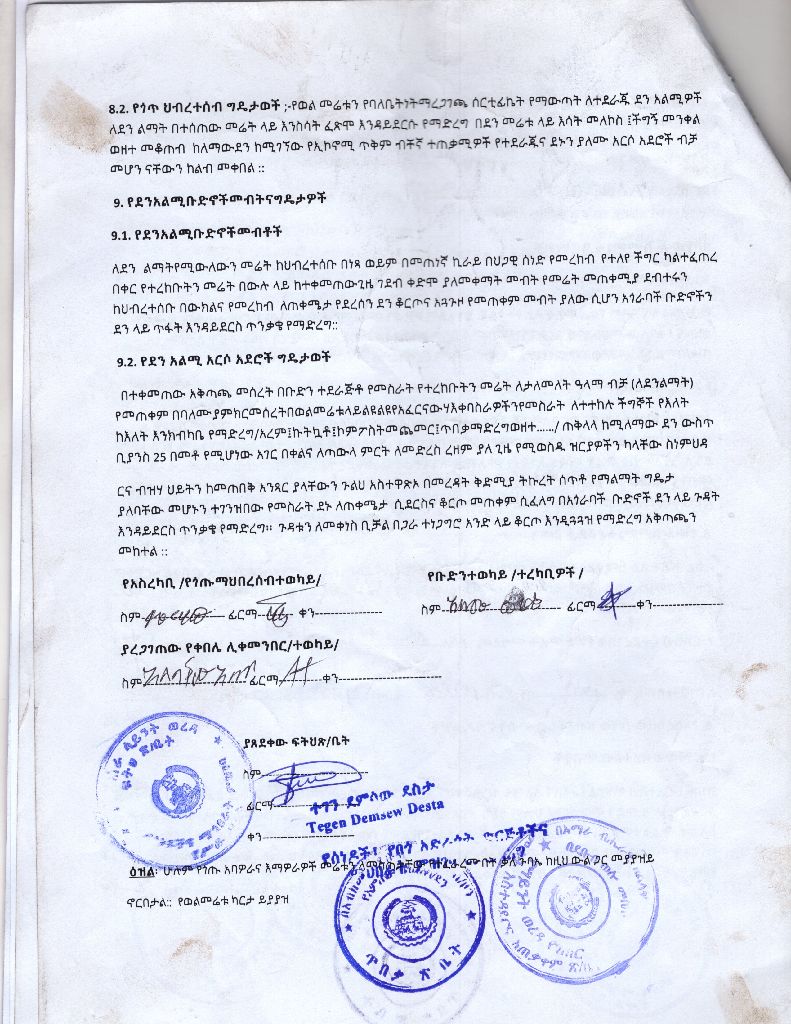 8.2. የጎጥ ህብረተሰብ ግዴታወች ;-የወል መሬቱን የባለቤትነትማረጋገጫ ሰርቲፊኬት የማውጣት ለተደራጁ ደን አልሚዎች
ለደን ልማት በተሰጠው መሬት ላይ እንስሳት ፈጽሞ እንዳይደርሱ የማድረግ በደን መሬቱ ላይ እሳት መለኮስ ፤ችግኝ መንቀል
ወዘተ መቆጠብ ከለማውደን ከሚገኘው የኢኮኖሚ ጥቅም ብቸኛ ተጠቃሚዎች የተደራጁና ደኑን ያለሙ አርሶ አደሮች ብቻ
መሆን ናቸውን ከልብ መቀበል ፡፡
9. የደንአልሚቡድኖችመብትናግዴታዎች
9.1. የደንአልሚቡድኖችመብቶች
ለደን ልማትየሚውለውን መሬት ከህብረተሰቡ በነጻ ወይም በመጠነኛ ኪራይ በህጋዊ ሰነድ የመረከብ የተለየ ችግር ካልተፈጠረ
በቀር የተረከቡትን መሬት በውሉ ላይ ከተቀመጠውጊዜ ገደብ ቀድሞ ያለመቀማት መብት የመሬት መጠቀሚያ ደብተሩን
ከህብረተሰቡ በውክልና የመረከብ ለጠቀሜታ የደረሰን ደን ቆርጦና አጓጉዞ የመጠቀም መብት ያለው ሲሆን አጎራባች ቡድኖችን
ደን ላይ ጥፋት እንዳይደርስ ጥንቃቄ የማድረግ፡፡
9.2. የደን አልሚ አርሶ አደሮች ግዴታወች
በተቀመጠው አቅጣጫ መሰረት በቡድን ተደራጅቶ የመስራት የተረከቡትን መሬት ለታለመለት ዓላማ ብቻ (ለደንልማት)
የመጠቀም በባለሙያምክርመሰረትበወልመሬቱላይልዩልዩየአፈርናውሃእቀባስራዎችንየመስራት ለተተከሉ ችግኞች የእለት
ከእለት እንክብካቤ የማድረግ/አረም፤ኩትኳቶ፤ኮምፖስትመጨመር፤ጥበቃማድረግወዘተ....../ ጠቅላላ ከሚለማው ደን ውስጥ
ቢያንስ 25 በመቶ የሚሆነው አገር በቀልና ለጣውላ ምርት ለመድረስ ረዘም ያለ ጊዜ የሚወስዱ ዝርያዎችን ካላቸው ስነምህዳ
ርና ብዝሃ ህይትን ከመጠበቅ አንጻር ያላቸውን ጉልህ አስተዋጽኦ በመረዳት ቅድሚያ ትኩረት ሰጥቶ የማልማት ግዴታ
ያለባቸው መሆኑን ተገንዝበው የመስራት ደኑ ለጠቀሜታ ሲደርስና ቆርጦ መጠቀም ሲፈልግ በአጎራባች ቡድኖች ደን ላይ ጉዳት
እንዳይደርስ ጥንቃቄ የማድረግ። ጉዳቱን ለመቀነስ ቢቻል በጋራ ተነጋግሮ አንድ ላይ ቆርጦ እንዲጓጓዝ የማድረግ አቅጣጫን
መከተል ፡፡
የአስረካቢ /የጎጡማህበረሰብተወካይ/ የቡድንተወካይ /ተረካቢዎች /
ስም ፊርማ ቀን
ስም ፊርማ ቀን
ያረጋገጠው የቀበሌ ሊቀመንበር/ተወካይ/
ስም ፊርማ ቀን
ያጸደቀው ፍትህጽ/ቤት
ስም
ፊርማ
ተገን ደምሰው ደስታ
Tegen Demsew Desta
ቀን
ዕዝል፡ ሁሉም የጎጡ አባዎራና እማዎራዎች መሬቱን
ቃለ ጉባኤ ከዚህ ውል ጋር መያያዝይ
ኖርበታል፡፡ የወልመሬቱ ካርታ ይያያዝ
ፍትህ ጽ/ቤት
ጥበቃ ጽ ቤት